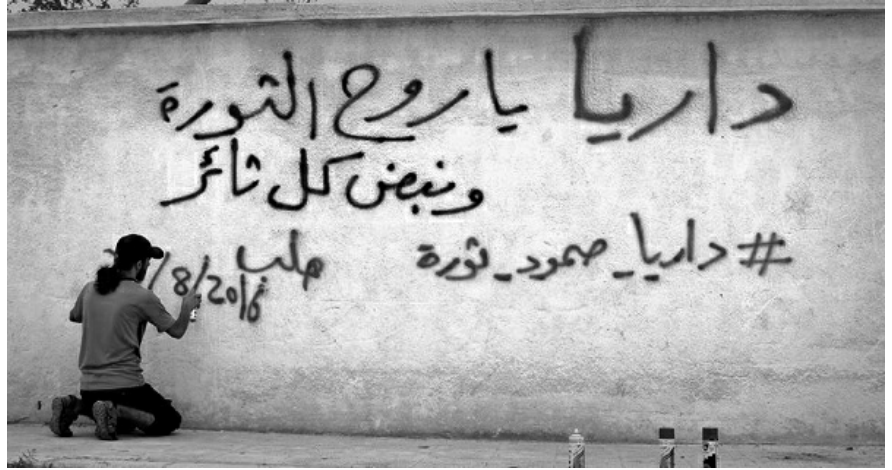 داريا يا روح الثورة
ونبض كل ثائر
#داريا_صمود_ثورة
حلب
/8/2016